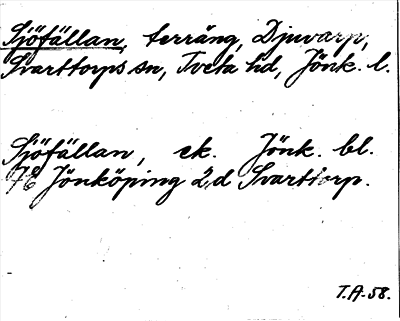 Sjöfällan, terräng, Djuvarp,
Svarttorps sn, Tveta hd, Jönk. l.
Sjöfällan, ek. Jönk. bl.
7E Jönköping 2d Svarttorp.
T.A-58.